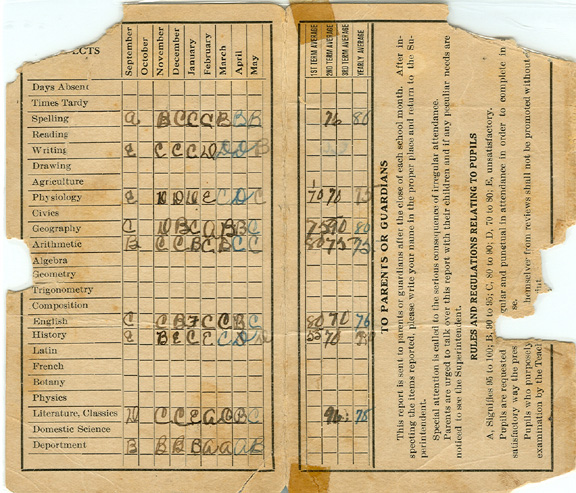 ECTS September October November December January February March April May 1ST TERM AVERAGE 2ND TERM AVERAGE 3RD TERM AVERAGE YEARLY AVERAGE
Days Absent
Times Tardy
Spelling a B C C C B B B 76 80
Reading
Writing C C C D D B
Drawing
Agriculture
Physiology C D C 70 70 75
Civics
Geography C D B C a B B C 75 90 80
Arithmetic B C C B C B C C 80 75 75
Algebra
Geometry
Trigonometry
Composition
English C C B F C C B C 80 70 76
History C D 55 70
Latin
French
Botany
Physics
Literature, Classics C C C B C 96 75
Domestic Science
Department B B B B a a a B
TO PARENTS OR GUARDIANS
This report is sent to parents or guardians after the close of each school month. After in-
specting the items reported, please write your name in the proper place and return to the Su-
perintendent.
Special attention is called to the serious consequence of irregular attendance.
Parents are urged to talk over this report with their children and if any peculiar needs are
noticed to see the Superintendent.
RULES AND REGULATIONS RELATING TO PUPILS
A, Signifies 95 to 100; B, 90 to 95; C, 80 to 90; D, 70 to 80; E, unsatisfactory.
Pupils are requested gular and punctual in attendance in order to complete in
satisfactory way the pres se.
Pupils who purposely hemselves from reviews shall not be promoted without
examination by the Teach